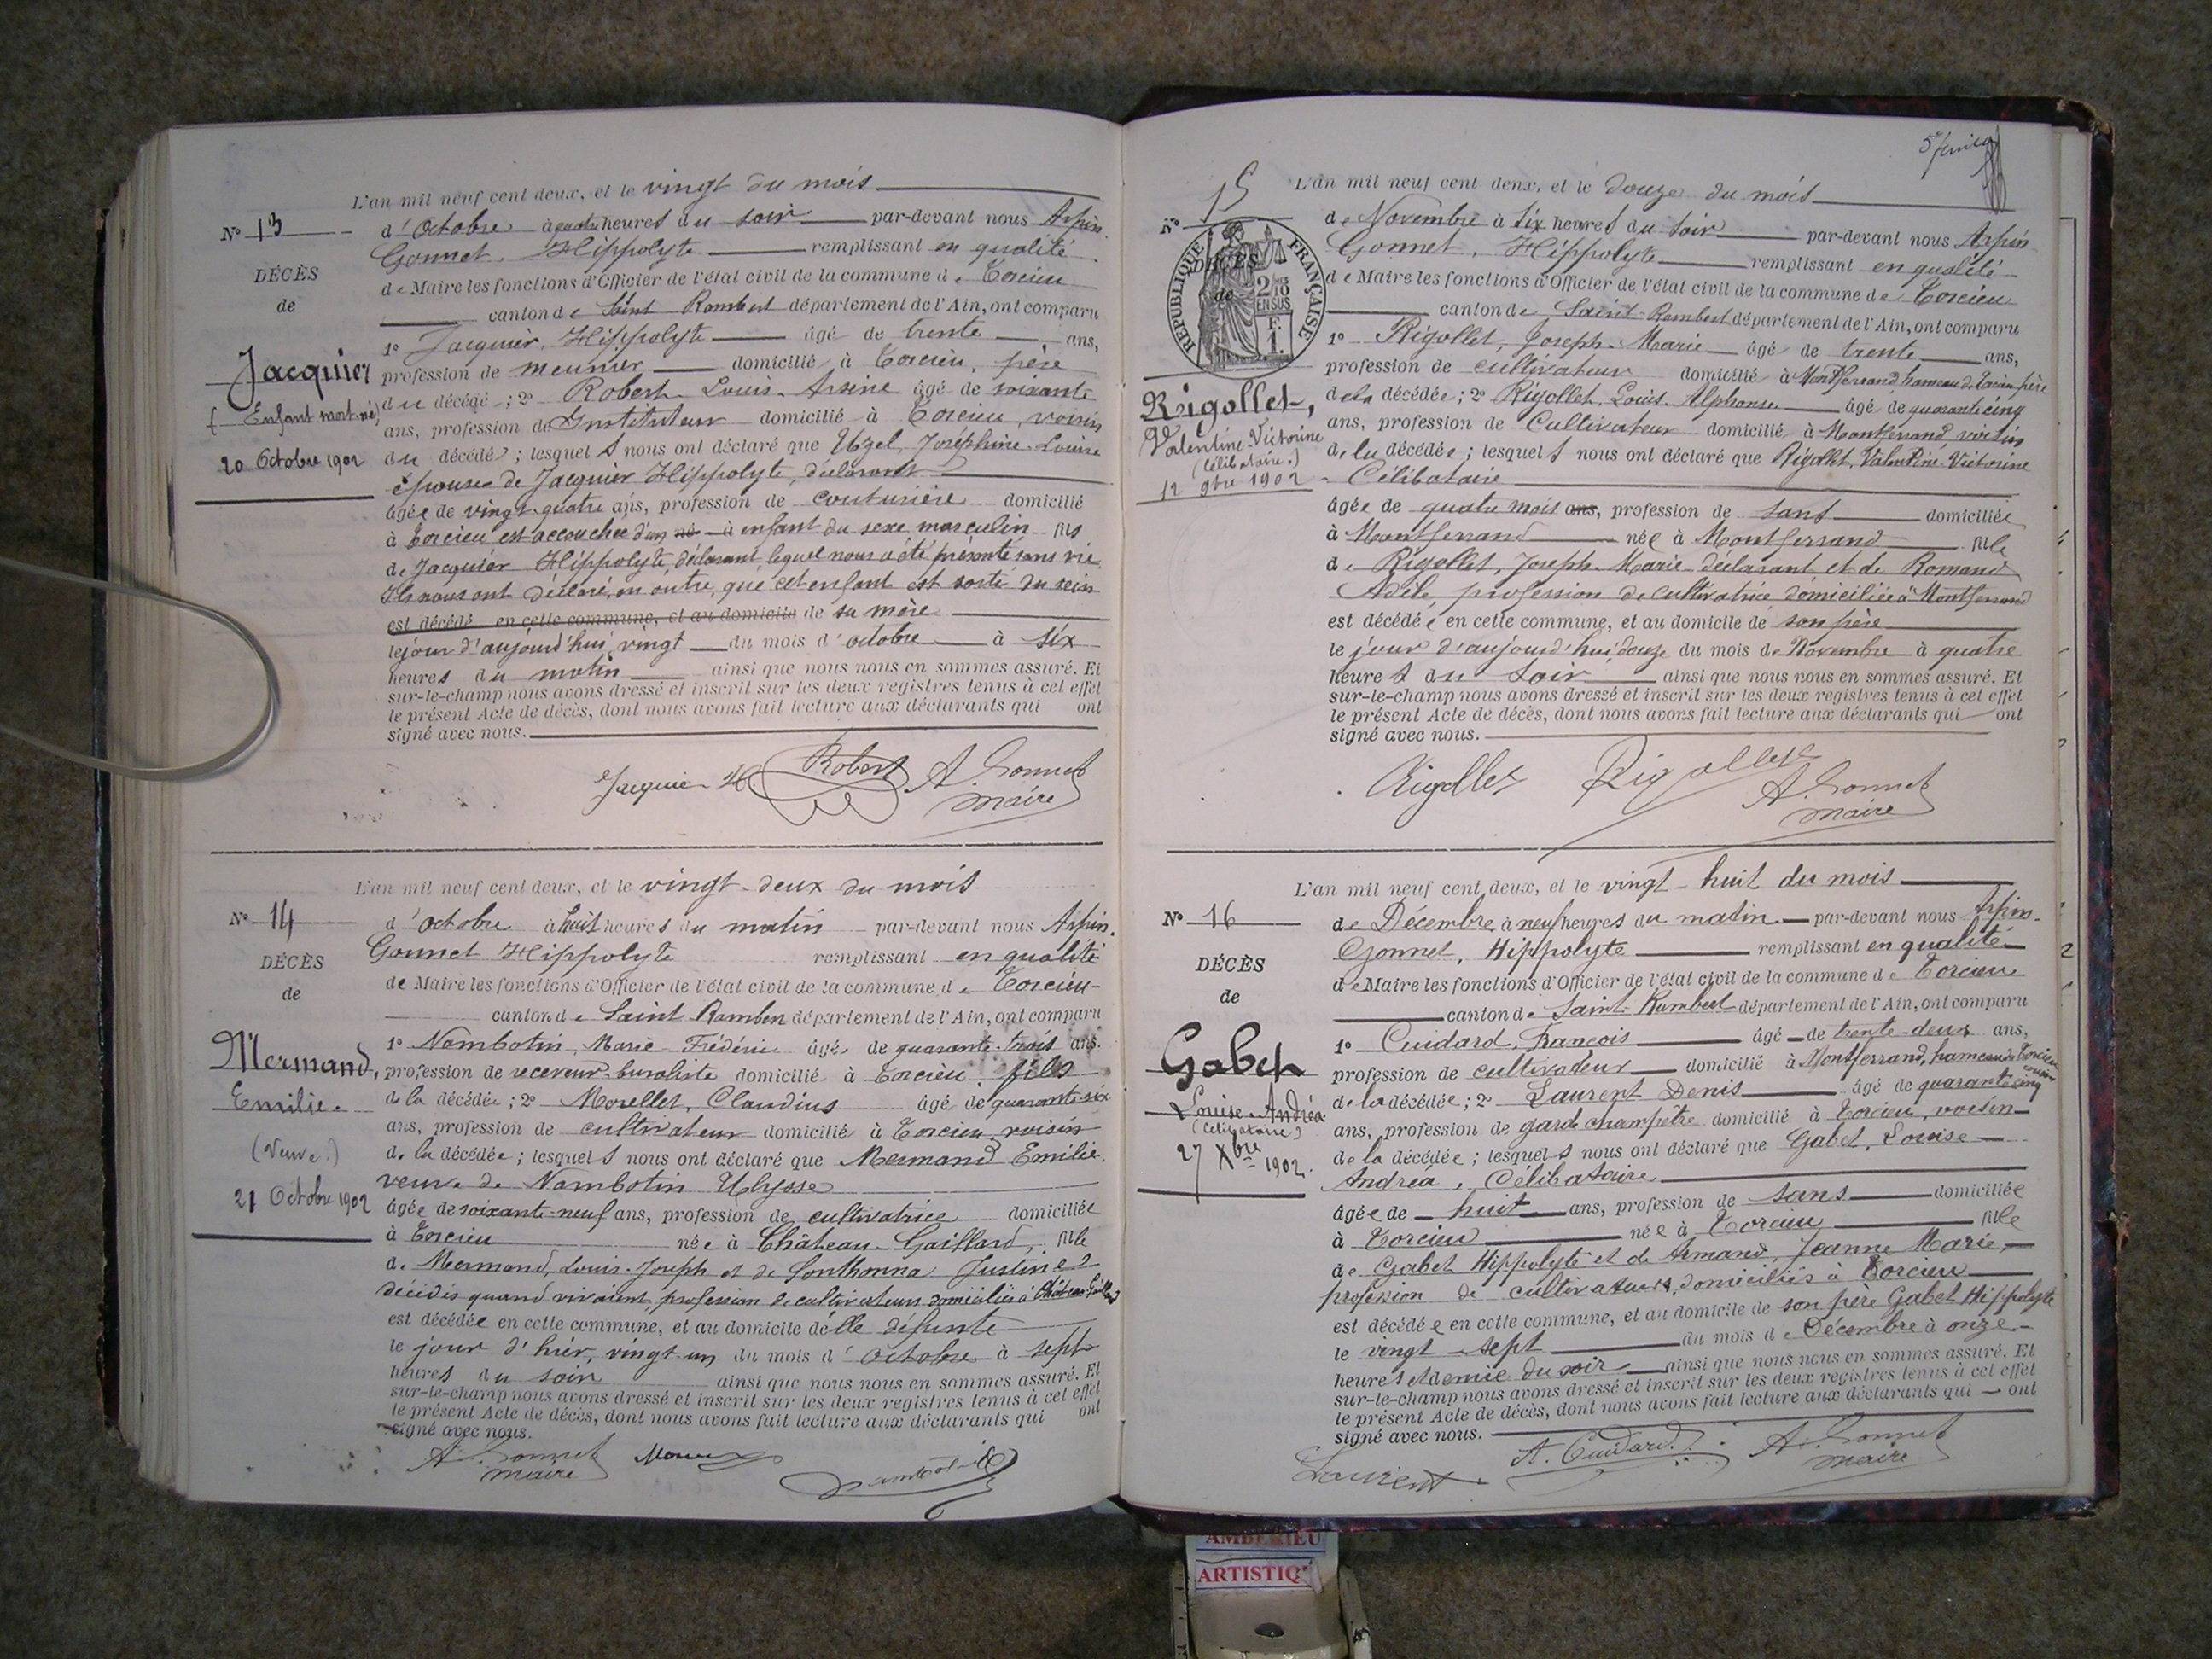 L'an mil neuf cent deux, et le vingt du mois
No 13
d'Octobre à quatre heures du soir par-devant nous Arpin-
Gonnet, Hippolyte remplissant en qualité
DÉCÈS
de Maire les fonctions d'Officier de l'état civil de la commune de Torcieu
de
canton de Saint Rambert département de l'Ain, ont comparu
1o Jacquier, Hippolyte âgé de trente ans,
Jacquier
profession de meunier domicilié à Torcieu, père
(Enfant mort-né)
du décédé ; 2o Robert Louis-Arsène âgé de soixante
ans, profession de Instituteur domicilié à Torcieu, voisin
20 Octobre 1902
du décédé ; lesquels nous ont déclaré que Uzel, Joséphine-Louise
épouse de Jacquier Hippolyte, déclarant
âgée de vingt-quatre ans, profession de couturière domicilié
à Torcieu est accouchée d'un né à enfant du sexe masculin fils
de Jacquier Hippolyte, déclarant, lequel nous a été présenté sans vie
Ils nous ont déclaré, en outre, que cet enfant est sorti du sein
est décédé en cette commune, et au domicile de sa mère
le jour d'aujourd'hui vingt du mois d'octobre à six
heures du matin ainsi que nous nous en sommes assuré. Et
sur-le-champ nous avons dressé et inscrit sur les deux registres tenus à cet effet
le présent Acte de décès, dont nous avons fait lecture aux déclarants qui ont
signé avec nous.
Jacquier H Robert A. Gonnet
maire
L'an mil neuf cent deux, et le vingt-deux du mois
No 14
d'octobre à huit heures du matin par-devant nous Arpin-
Gonnet Hippolyte remplissant en qualité
DÉCÈS
de Maire les fonctions d'Officier de l'état civil de la commune de Torcieu-
de
canton de Saint Rambert département de l'Ain, ont comparu
1o Nambotin, Marie Frédéric âgé de quarante-trois ans.
Mermand,
profession de receveur-buraliste domicilié à Torcieu, fils
Emilie.
de la décédée ; 2o Morellet, Claudius âgé de quarante-six
ans, profession de cultivateur domicilié à Torcieu, voisin
(Veuve.)
de la décédée ; lesquels nous ont déclaré que Mermand Emilie.
veuve de Nambotin Ulysse
21 Octobre 1902
âgée de soixante-neuf ans, profession de cultivatrice domiciliée
à Torcieu née à Château-Gaillard, fille
de Mermand, Louis-Joseph et de Justine
décédés quand vivaient, profession de cultivateurs domiciliés à Château-Gaillard
est décédée en cette commune, et au domicile d'elle défunte
le jour d'hier, vingt-un du mois d'Octobre à sept
heures du soir ainsi que nous nous en sommes assuré. Et
sur-le-champ nous avons dressé et inscrit sur les deux registres tenus à cet effet
le présent Acte de décès, dont nous avons fait lecture aux déclarants qui ont
signé avec nous.
A. Gonnet
maire
5e
No 15
L'an mil neuf cent deux, et le douze du mois
de Novembre à six heures du soir par-devant nous Arpin
Gonnet, Hippolyte remplissant en qualité
RÉPUBLIQUE FRANÇAISE
2/10 EN SUS
F. 1.
DÉCÈS
de
de Maire les fonctions d'Officier de l'état civil de la commune de Torcieu
canton de Saint-Rambert département de l'Ain, ont comparu
1o Rigollet, Joseph-Marie âgé de trente ans,
profession de cultivateur domicilié à Montferrand hameau de Torcieu père
Rigollet,
de la décédée ; 2o Rigollet, Louis-Alphonse âgé de quarante cinq
Valentine Victorine
ans, profession de Cultivateur domicilié à Montferrand, voisin
(Célibataire.)
de la décédée ; lesquels nous ont déclaré que Rigollet, Valentine-Victorine
12 9bre 1902
Célibataire
âgée de quatre mois ans, profession de sans domiciliée
à Montferrand née à Montferrand fille
de Rigollet, Joseph-Marie déclarant, et de Romand
Adèle, profession de cultivatrice domiciliée à Montferrand
est décédée en cette commune, et au domicile de son père
le jour d'aujourd'hui douze du mois de Novembre à quatre
heures du soir ainsi que nous nous en sommes assuré. Et
sur-le-champ nous avons dressé et inscrit sur les deux registres tenus à cet effet
le présent Acte de décès, dont nous avons fait lecture aux déclarants qui ont
signé avec nous.
Rigollet Rigollet A. Gonnet
maire
L'an mil neuf cent deux, et le vingt-huit du mois
No 16
de Décembre à neuf heures du matin par-devant nous Arpin-
Gonnet, Hippolyte remplissant en qualité
DÉCÈS
de Maire les fonctions d'Officier de l'état civil de la commune de Torcieu
de
canton de Saint-Rambert département de l'Ain, ont comparu
1o Cuidard, François âgé de trente-deux ans,
Gabet
profession de cultivateur domicilié à Montferrand, hameau de Torcieu cousin
Louise-Andréa
de la décédée ; 2o Laurent Denis âgé de quarante cinq
(Célibataire)
ans, profession de garde champêtre domicilié à Torcieu, voisin
27 Xbre 1902.
de la décédée ; lesquels nous ont déclaré que Gabet, Louise
Andréa, Célibataire
âgée de huit ans, profession de sans domiciliée
à Torcieu née à Torcieu fille
de Gabet Hippolyte et de Armand, Jeanne Marie,
profession de cultivateurs, domiciliés à Torcieu
est décédée en cette commune, et au domicile de son père Gabet Hippolyte
le vingt-sept du mois de Décembre à onze
heures et demie du soir ainsi que nous nous en sommes assuré. Et
sur-le-champ nous avons dressé et inscrit sur les deux registres tenus à cet effet
le présent Acte de décès, dont nous avons fait lecture aux déclarants qui ont
signé avec nous.
Laurent A. Cuidard. A. Gonnet
maire
AMBERIEU
ARTISTIQ